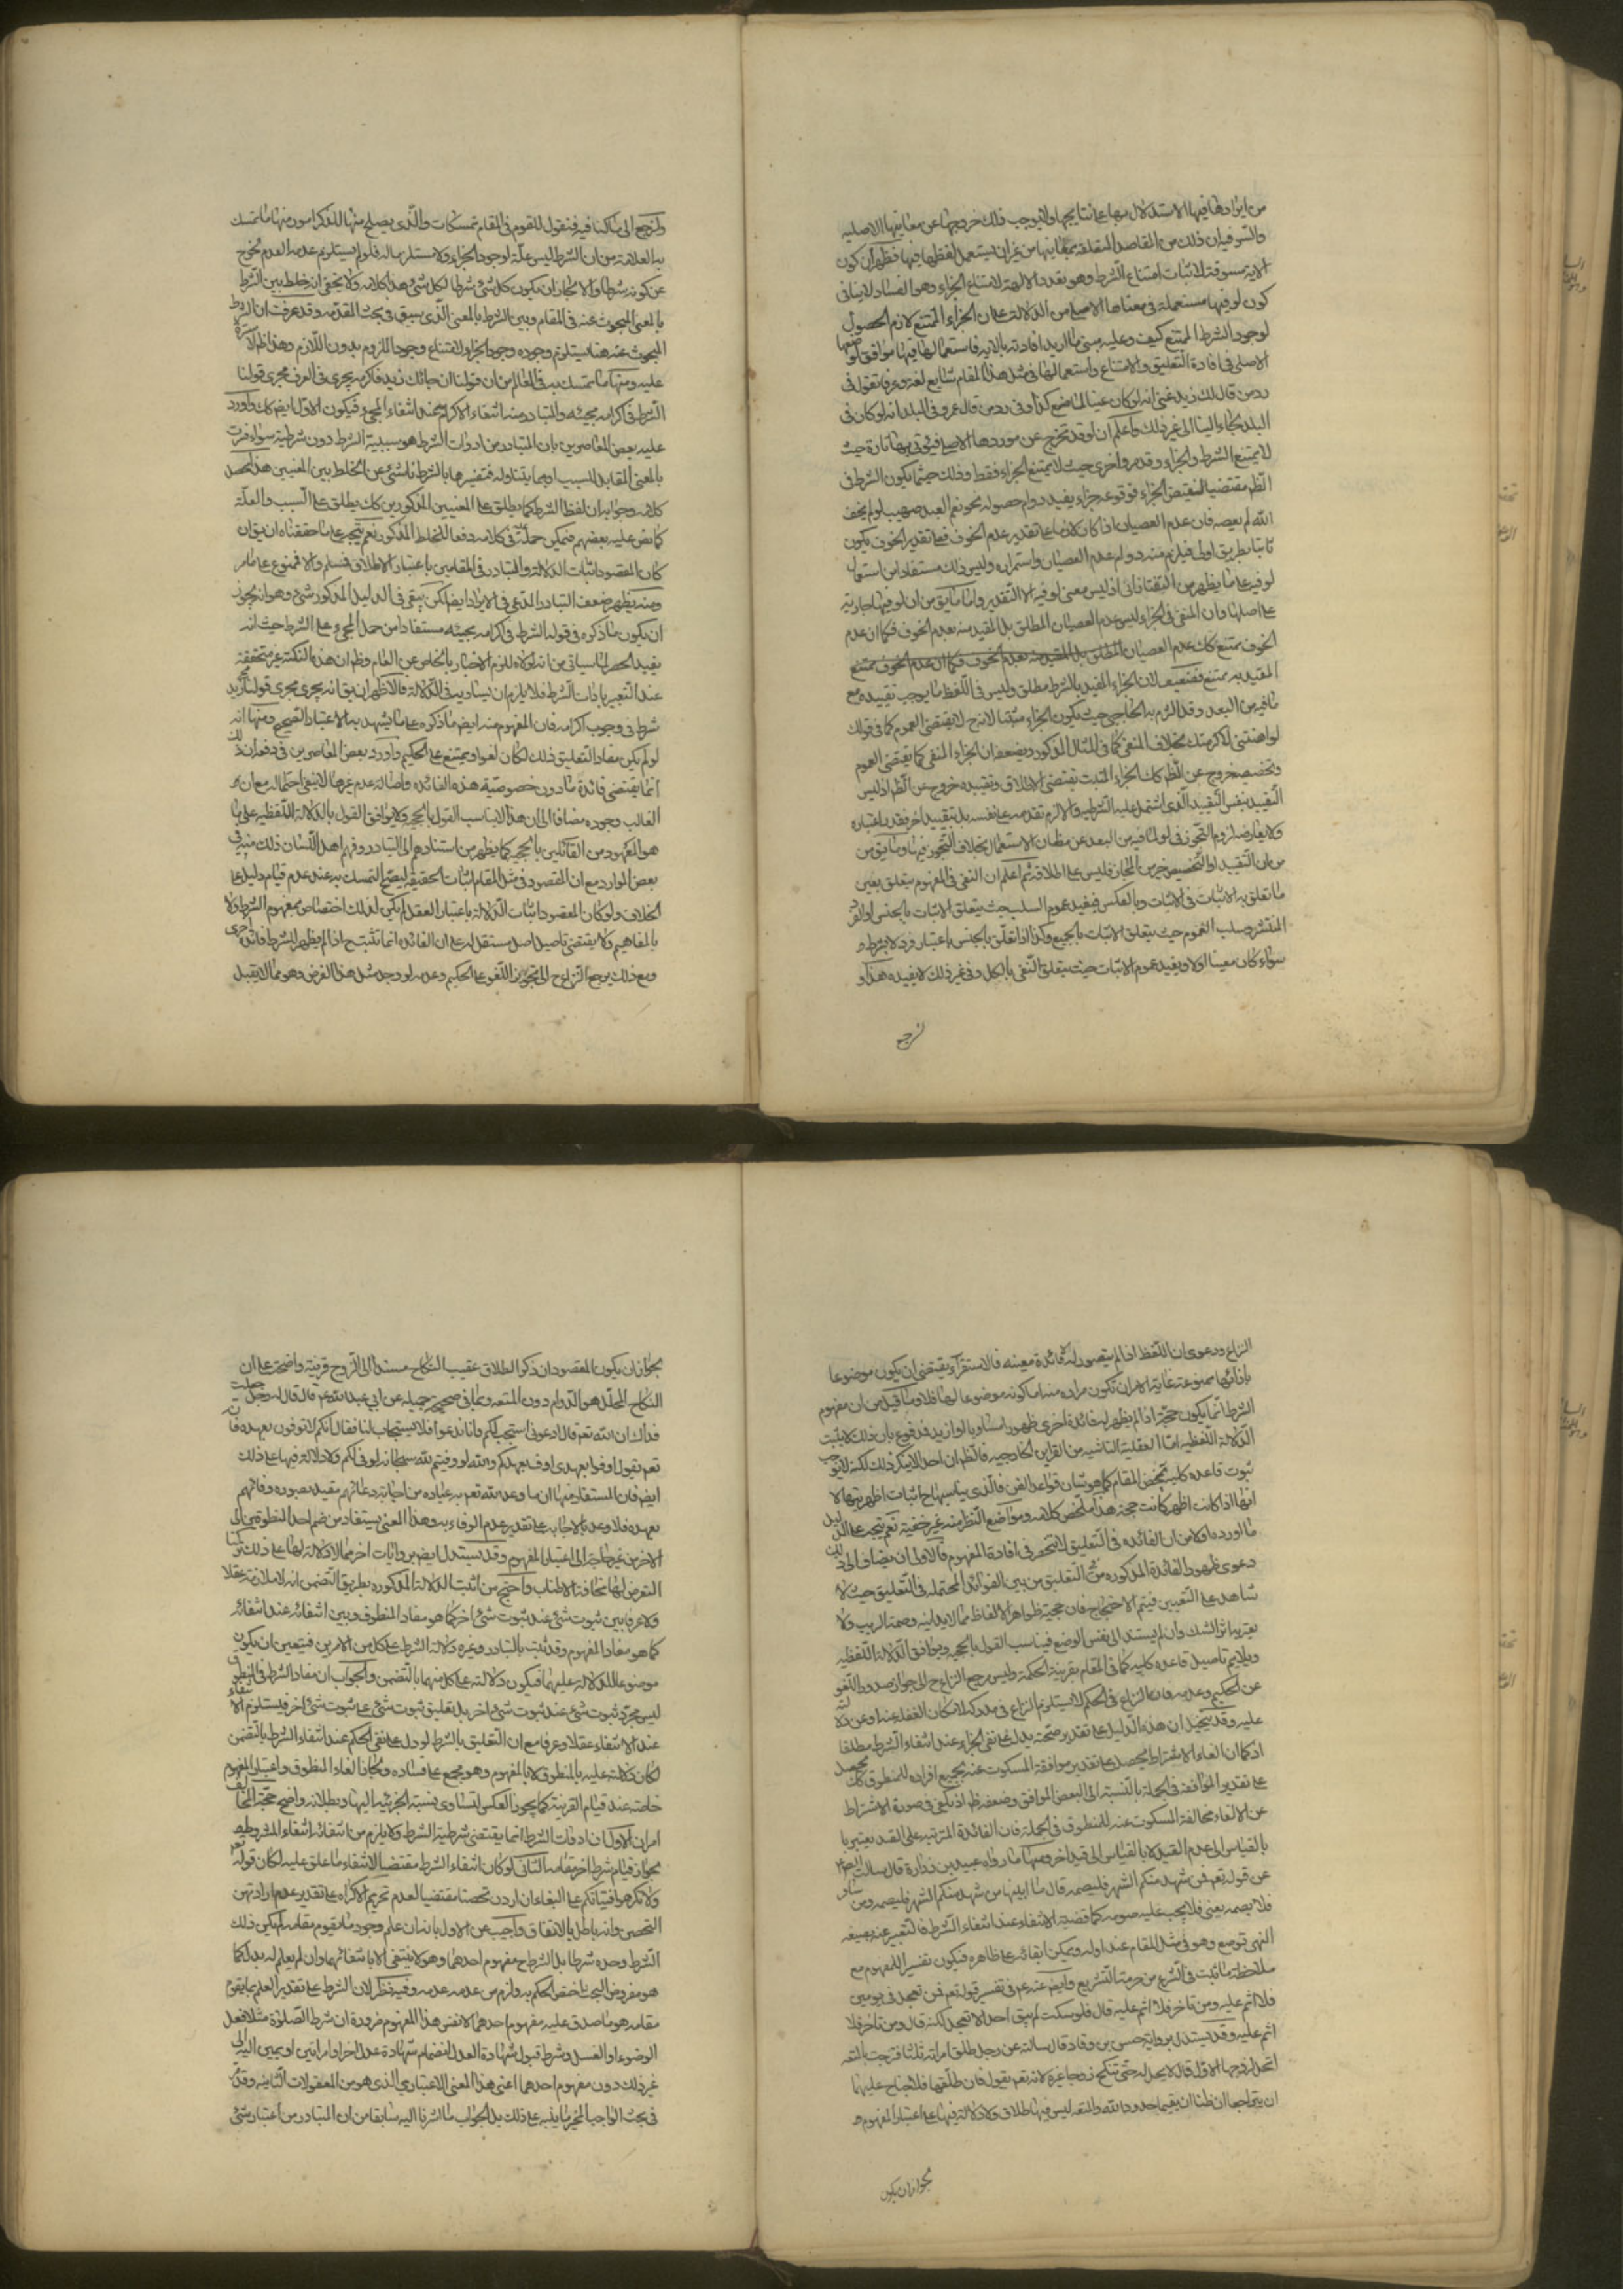 من ايرادها فيها الاستدلال بها على نتايجها ولا يوجب ذلك خروجها عن معانيها الاصليه
والسر فيه ان ذلك من المقاصد المتعلقة بمعانيها من غير ان يستعمل لفظها فيها فظهر ان كون
الاية مسوقة لاثبات امتناع الشرط وهو تعدد الالهة لامتناع الجزاء وهو الفساد لا ينافى
كون لو فيها مستعملة فى معناها الاصلى من الدلالة على ان الجزاء الممتنع لازم الحصول
لوجود الشرط الممتنع كيف وعليه يبتنى ما اريد افادته بالاية فاستعمالها فيها موافق لوضعها
الاصلى فى افادة التعليق والامتناع واستعمالها فى مثل هذا المقام شايع لغة وعرفا تقول فى
رد من قال لك زيد غنى انه لو كان غنيا لما صنع كذا وفى رد من قال عمرو فى البلد انه لو كان فى
البلد لجاء الينا الى غير ذلك واعلم ان لو قد تخرج عن موردها الاصلى فيؤتى بها تارة حيث
لا يمتنع الشرط والجزاء وقد مر واخرى حيث لا يمتنع الجزاء فقط وذلك حيثما يكون الشرط فى
الظ مقتضيا لنقيض الجزاء فوقوعه جزاء يفيد دوام حصوله نحو نعم العبد صهيب لو لم يخف
الله لم يعصه فان عدم العصيان اذا كان لازما على تقدير عدم الخوف فعلى تقدير الخوف يكون
ثابتا بطريق اولى فيلزم منه دوام عدم العصيان واستمراره وليس ذلك مستفادا من استعمال
لو فيه على ما يظهر من التفتازانى اذ ليس معنى لو فيه الا التقدير واما ما يق من ان لو فيها جارية
على اصلها وان المنفى فى الجزاء ليس عدم العصيان المطلق بل المقيد منه بعدم الخوف فكما ان عدم
الخوف ممتنع كك عدم العصيان المطلق بل المقيد منه بعدم الخوف فكما ان عدم الخوف ممتنع
المقيد به ممتنع فضعيف لان الجزاء المقيد بالشرط مطلق وليس فى اللفظ ما يوجب تقييده مع
ما فيه من البعد وقد التزم به الحاجبى حيث يكون الجزاء مثبتا لانه ح لا يقتضى العموم كما فى قولك
لو اهنتنى لاكرمتك بخلاف المنفى كما فى المثال المذكور ويضعفه ان الجزاء المنفى كما يقتضى العموم
وتخصيصه خروج عن الظ كك الجزاء المثبت يقتضى الاطلاق وتقييده خروج عن الظ اذ ليس
التقييد بنفس التقييد الذى اشتمل عليه الشرطية والا لزم تقدمه على نفسه بل بتقييد اخر يقدر باعتباره
ولا يعارضه لزوم التجوز فى لو لما فيه من البعد عن مظان الاستعمال بخلاف التجوز فيها وما يق من
من ان التقييد او التخصيص خير من المجاز فليس على اطلاقه ثم اعلم ان النفى فى المفهوم يتعلق بعين
ما تعلق به الاثبات فى الاثبات وبالعكس فيفيد عموم السلب حيث يتعلق الاثبات بالجنس او الفرد
المنتشر وسلب العموم حيث يتعلق الاثبات بالجميع وكذا اذا تعلق بالجنس باعتبار فرد لا بشرط و
سواء كان معينا او لا ويفيد عموم الاثبات حيث يتعلق النفى بالكل وفى غير ذلك لا يفيده هذا و
لنرجع
ولنرجع الى ما كنا فيه فنقول للقوم فى المقام تمسكات والذى يصلح منها للذكر امور منها ما تمسك
به العلامة من ان الشرط ليس علة لوجود الجزاء ولا مستلزما له فلو لم يستلزم عدمه العدم لخرج
عن كونه شرطا والا لجاز ان يكون كل شئ شرطا لكل شئ هذا كلامه ولا يخفى انه خلط بين الشرط
بالمعنى المبحوث عنه فى المقام وبين الشرط بالمعنى الذى سبق فى بحث المقدمة وقد عرفت ان الشرط
المبحوث عنه هنا يستلزم وجوده وجود الجزاء لامتناع وجود الملزوم بدون اللازم وهذا ظ لا سترة
عليه ومنها ما تمسك به فى المعالم من ان قولنا ان جائك زيد فاكرمه يجرى فى العرف مجرى قولنا
الشرط فى اكرامه مجيئه والمتبادر منه انتفاء الاكرام عند انتفاء المجئ فيكون الاول ايض كك واورد
عليه بعض المعاصرين بان المتبادر من ادوات الشرط هو سببية الشرط دون شرطيته سواء فسرت
بالمعنى المقابل للسبب او بما يتناوله فتفسيرها بالشرط ناشئ عن الخلط بين المعنيين هذا محصل
كلامه وجوابه ان لفظ الشرط كما يطلق على المعنيين المذكورين كك يطلق على السبب والعلة
كما نص عليه بعضهم فيمكن حمله فى كلامه دفعا للخلط المذكور نعم يتجه على ما حققناه ان يق ان
كان المقصود اثبات الدلالة والتبادر فى المقامين باعتبار الاطلاق فمسلم والا فممنوع على ما مر
ومنه يظهر ضعف التبادر المدعى فى الايراد ايض لكن يبقى فى الدليل المذكور شئ وهو انه يجوز
ان يكون ما ذكره فى قوله الشرط فى اكرامه مجيئه مستفادا من حمل المجئ على الشرط حيث انه
يفيد الحصر لما سياتى من انه لولاه للزم الاخبار بالخاص عن العام وظ ان هذه النكتة غير متحققة
عند التعبير باداة الشرط فلا يلزم ان يساويه فى الدلالة فالاظهر ان يق انه يجرى مجرى قولنا مجئ زيد
شرط فى وجوب اكرامه فان المفهوم منه ايض ما ذكره على ما يشهد به الاعتبار الصحيح ومنها انه
لو لم يكن مفاد التعليق ذلك لكان لغوا ويمتنع على الحكيم واورد بعض المعاصرين فى دفعه ان ذلك
انما يقتضى فائدة ما دون خصوصية هذه الفائدة واصالة عدم غيرها لا ينفى احتماله مع ان
الغالب وجوده مضافا الى ان هذا لا يناسب القول بالحجية ولا يوافق القول بالدلالة اللفظية على ما
هو المعهود من القائلين بالحجية كما يظهر من استنادهم الى التبادر وفهم اهل اللسان ذلك منه فى
بعض الموارد مع ان المقصود فى مثل المقام اثبات الحقيقة ليصح التمسك به عند عدم قيام دليل على
الخلاف ولو كان المقصود اثبات الدلالة باعتبار العقل لم يكن لذلك اختصاص بمفهوم الشرط ولا
بالمفاهيم ولا يقتضى تاصيل اصل مستقل له على ان الفائدة انما تثبت ح اذا لم يظهر للشرط فائدة اخرى
ومع ذلك يرجع النزاع ح الى تجويز اللغو على الحكيم وعدمه لو وجد مثل هذا الفرض وهو مما لا يقبل
النزاع ودعوى ان اللفظ اذا لم يتصور له الا فائدة معينة فالاستقراء يقتضى ان يكون موضوعا
بازائها ممنوعة غاية الامر ان تكون مرادة منه اما كونه موضوعا لها فلا وما قيل من ان مفهوم
الشرط انما يكون حجة اذا لم يظهر له فائدة اخرى ظهورا مساويا او ازيد مدفوع بان ذلك لا يثبت
الدلالة اللفظية اما العقلية الناشية من القراين الخارجية فالظ ان احدا لا ينكر ذلك لكنه لا يوجب
ثبوت قاعدة كلية تخص المقام كما هو شان قواعد الفن فالذى يناسبها ح اثبات اظهريتها لا
انها اذا كانت اظهر كانت حجة هذا ملخص كلامه ومواضع النظر منه غير خفية نعم يتجه على الدليل
ما اورده اولا من ان الفائدة فى التعليق لا تنحصر فى افادة المفهوم فالاولى ان يضاف الى ذلك
دعوى ظهور الفائدة المذكورة من التعليق من بين الفوائد المحتملة فى التعليق حيث لا
شاهد على التعيين فيتم الاحتجاج فان حجية ظواهر الالفاظ مما لا يدانيه وصمة الريب ولا
يعتريه اثر الشك وان لم يستند الى نفس الوضع فيناسب القول بالحجية ويوافق الدلالة اللفظية
ويلايم تاصيل قاعدة كلية كما فى المقام بقرينة الحكمة وليس مرجع النزاع ح الى جواز صدور اللغو
عن الحكيم وعدمه فان النزاع فى الحكم لا يستلزم النزاع فى مدركه لامكان الغفلة عنه او عن دلالته
عليه وقد يتخيل ان هذا الدليل على تقدير صحته يدل على نفى الجزاء عند انتفاء الشرط مطلقا
اذ كما ان الغاء الاشتراط يحصل على تقدير موافقة المسكوت عنه بجميع افراده للمنطوق كك يحصل
على تقدير الموافقة فى الجملة بالنسبة الى البعض الموافق وضعفه ظ اذ يكفى فى صورة الاشتراط
عن الالغاء مخالفة المسكوت عنه للمنطوق فى الجملة فان الفائدة المترتبة على القيد يعتبر با
بالقياس الى عدم القيد لا بالقياس الى قيد اخر ومنها ما رواه عبيد بن زرارة قال سالت الص
عن قوله تعم فمن شهد منكم الشهر فليصمه قال ما ابينها من شهد منكم الشهر فليصمه ومن سافر
فلا يصمه يعنى فلا يجب عليه صومه كما قضية الانتفاء عند انتفاء الشرط فالتعبير عنه بصيغه
النهى توسع وهو فى مثل المقام عند اوله ويمكن ابقائه على ظاهره فيكون تفسيرا للمفهوم مع
ملاحظة ما ثبت فى الشرع من حرمة التشريع وايض عنه عم فى تفسير قوله تعم فمن تعجل فى يومين
فلا اثم عليه ومن تاخر فلا اثم عليه قال فلو سكت لم يبق احد الا تعجل لكنه قال ومن تاخر فلا
اثم عليه وقد يستدل برواية حسن بن وقاد قال سالته عن رجل طلق امراته ثلثا فتزوجت بالمتعه
اتحل لزوجها الاول قال لا يحل له حتى تنكح زوجا غيره لانه تعم يقول فان طلقها فلا جناح عليهما
ان يتراجعا ان ظنا ان يقيما حدود الله والمتعه ليس فيها طلاق ولا دلالة فيها على اعتبار المفهوم و
لجواز ان يكون
لجواز ان يكون المقصود ان ذكر الطلاق عقيب النكاح مسندا الى الزوج قرينة واضحة على ان
النكاح المحلل هو الدوام دون المتعه وبما فى صحيحة جميله عن ابى عبد الله عم قال قال له رجل جعلت
فداك ان الله تعم قال ادعونى استجب لكم وانا ندعوا فلا يستجاب لنا فقال انكم لا توفون بعهده فانه
تعم يقول اوفوا بعهدى اوف بعهدكم والله لو وفيتم لله سبحانه لوفى لكم ولا دلالة فيها على ذلك
ايض فان المستفاد منها ان ما وعد الله تعم به عباده من اجابة دعائهم مقيد بصورة وفائهم
بعهده فلا وعد بالاجابه على تقدير عدم الوفاء به وهذا المعنى يستفاد من ضم احد المنطوقين الى
الاخر من غير حاجة الى اعتبار المفهوم وقد يستدل ايض بروايات اخر مما لا دلالة لها على ذلك تركنا
التعرض لها مخافة الاطناب واحتج من اثبت الدلالة المذكوره بطريق التضمن انه لا ملازمة عقلا
ولا عرفا بين ثبوت شئ عند ثبوت شئ اخر كما هو مفاد المنطوق وبين انتفائه عند انتفائه
كما هو مفاد المفهوم وقد ثبت بالتبادر وغيره دلالة الشرط على كل من الامرين فيتعين ان يكون
موضوعا للدلالة عليهما فيكون دلالته على كل منهما بالتضمن والجواب ان مفاد الشرط فى المنطوق
ليس مجرد ثبوت شئ عند ثبوت شئ اخر بل تعليق ثبوت شئ على ثبوت شئ اخر فيستلزم الانتفاء
عند الانتفاء عقلا وعرفا مع ان التعليق بالشرط لو دل على نفى الحكم عند انتفاء الشرط بالتضمن
لكان دلالته عليه بالمنطوق لا بالمفهوم وهو مجمع على فساده ولجاز الغاء المنطوق واعتبار المفهوم
خاصة عند قيام القرينة كما يجوز العكس لتساوى نسبة الجزئيه اليهما وبطلانه واضح حجة المخالف
امران الاول ان ادوات الشرط انما يقتضى شرطية الشرط ولا يلزم من انتفائه انتفاء المشروط
لجواز قيام شرط اخر مقامه الثانى لو كان انتفاء الشرط مقتضيا لانتفاء ما علق عليه لكان قوله تعم
ولا تكرهوا فتياتكم على البغاء ان اردن تحصنا مقتضيا لعدم تحريم الاكراه على تقدير عدم ارادتهن
التحصن وانه باطل بالاتفاق واجيب عن الاول بانه ان علم وجود ما يقوم مقامه لم يكن ذلك
الشرط وحده شرطا بل الشرط ح مفهوم احدهما وهو لا ينتفى الا بانتفائهما وان لم يعلم له بدل كما
هو مفروض البحث اختص الحكم به ولزم من عدمه عدمه وفيه نظر لان الشرط على تقدير العلم بما يقوم
مقامه هو ما صدق عليه مفهوم احدهما لا نفس هذا المفهوم ضرورة ان شرط الصلوة مثلا فعل
الوضوء او الغسل وشرط قبول شهادة العدل انضمام شهادة عدل اخر او امراتين او يمين اليه الى
غير ذلك دون مفهوم احدهما اعنى هذا المعنى الاعتبارى الذى هو من المعقولات الثانية وقد مر
فى بحث الواجب المخير ما ينبه على ذلك بل الجواب ما اشرنا اليه سابقا من ان المتبادر من اعتبار شئ